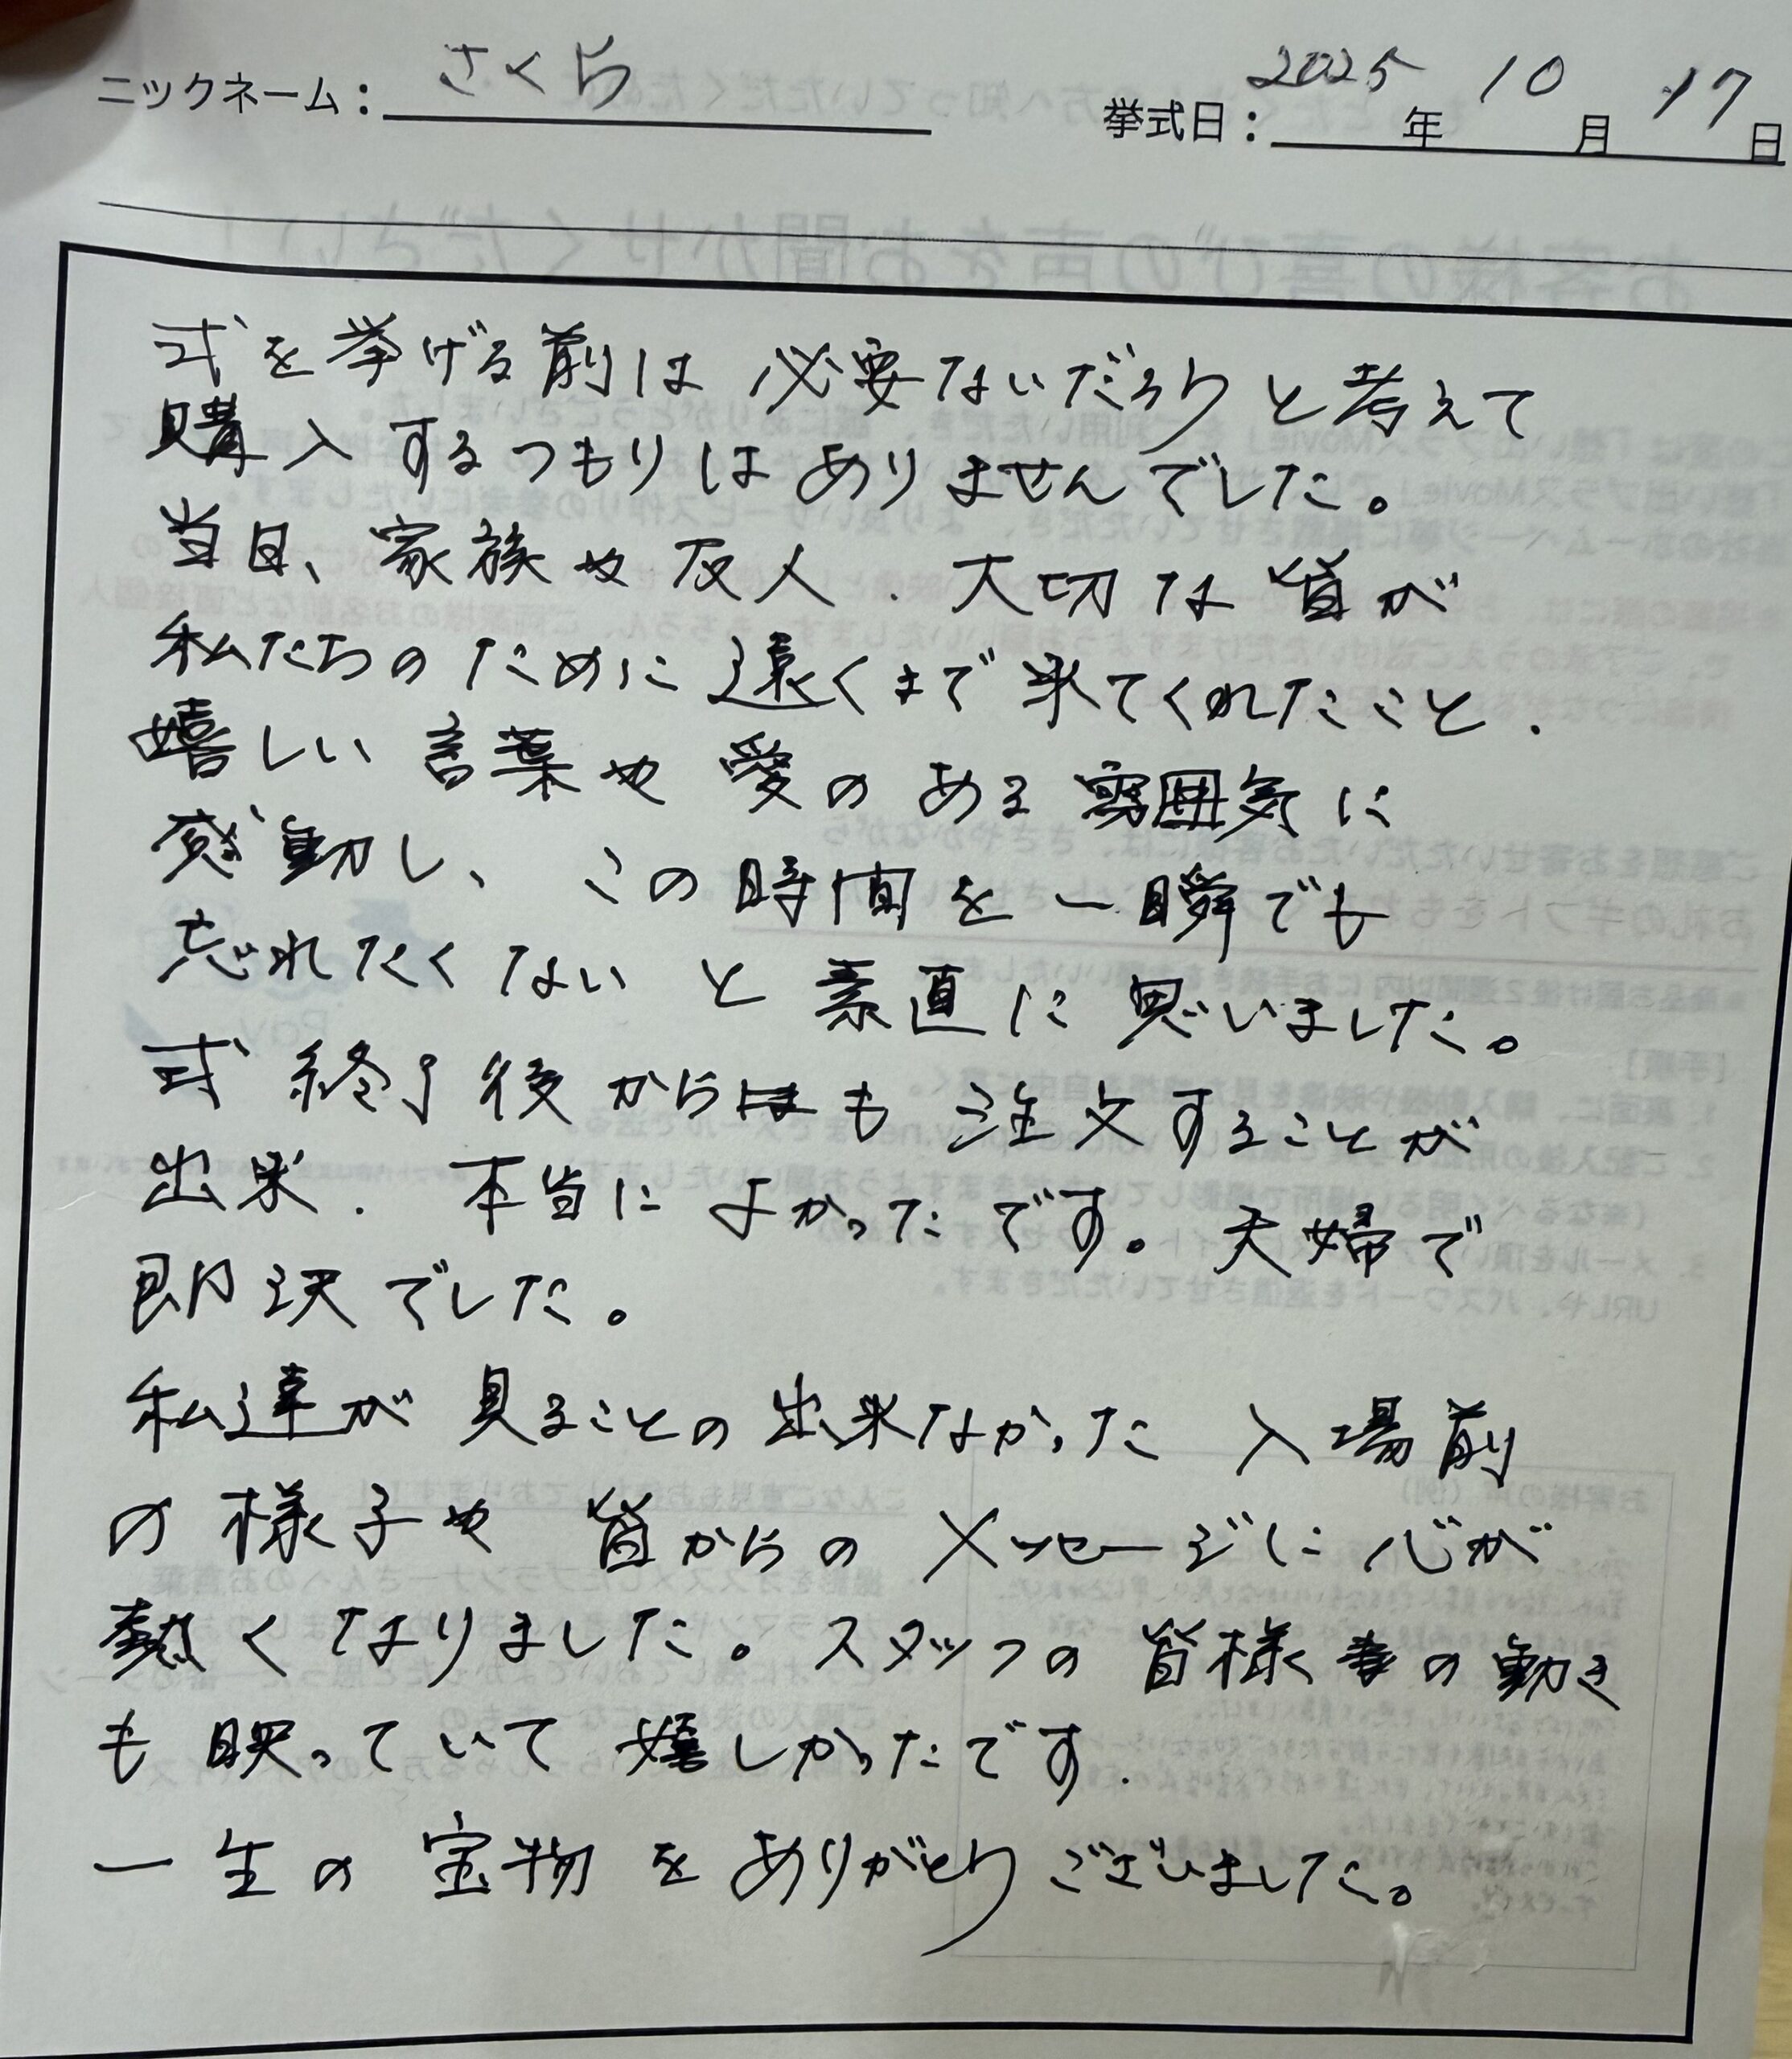 ニックネーム： さくら 挙式日： 2025年 10月 17日
式を挙げる前は 必要ないだろうと考えて
購入するつもりはありませんでした。
当日、家族や友人、大切な皆が
私たちのために遠くまで来てくれたこと、
嬉しい言葉や愛のある雰囲気に
感動し、この時間を一瞬でも
忘れたくないと素直に思いました。
式終了後からも注文することが
出来、本当によかったです。夫婦で
即決でした。
私達が見ることの出来なかった入場前
の様子や皆からのメッセージに心が
熱くなりました。スタッフの皆様の動き
も映っていて嬉しかったです。
一生の宝物をありがとうございました。